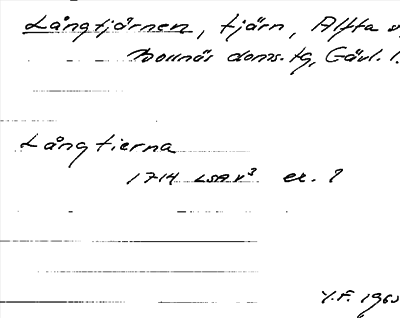 Långtjärnen, tjärn, Alfta
Bollnäs doms.tg, Gävl. l.
Långtierna
1714 LSA X³ ek. 1
Y.F. 1965